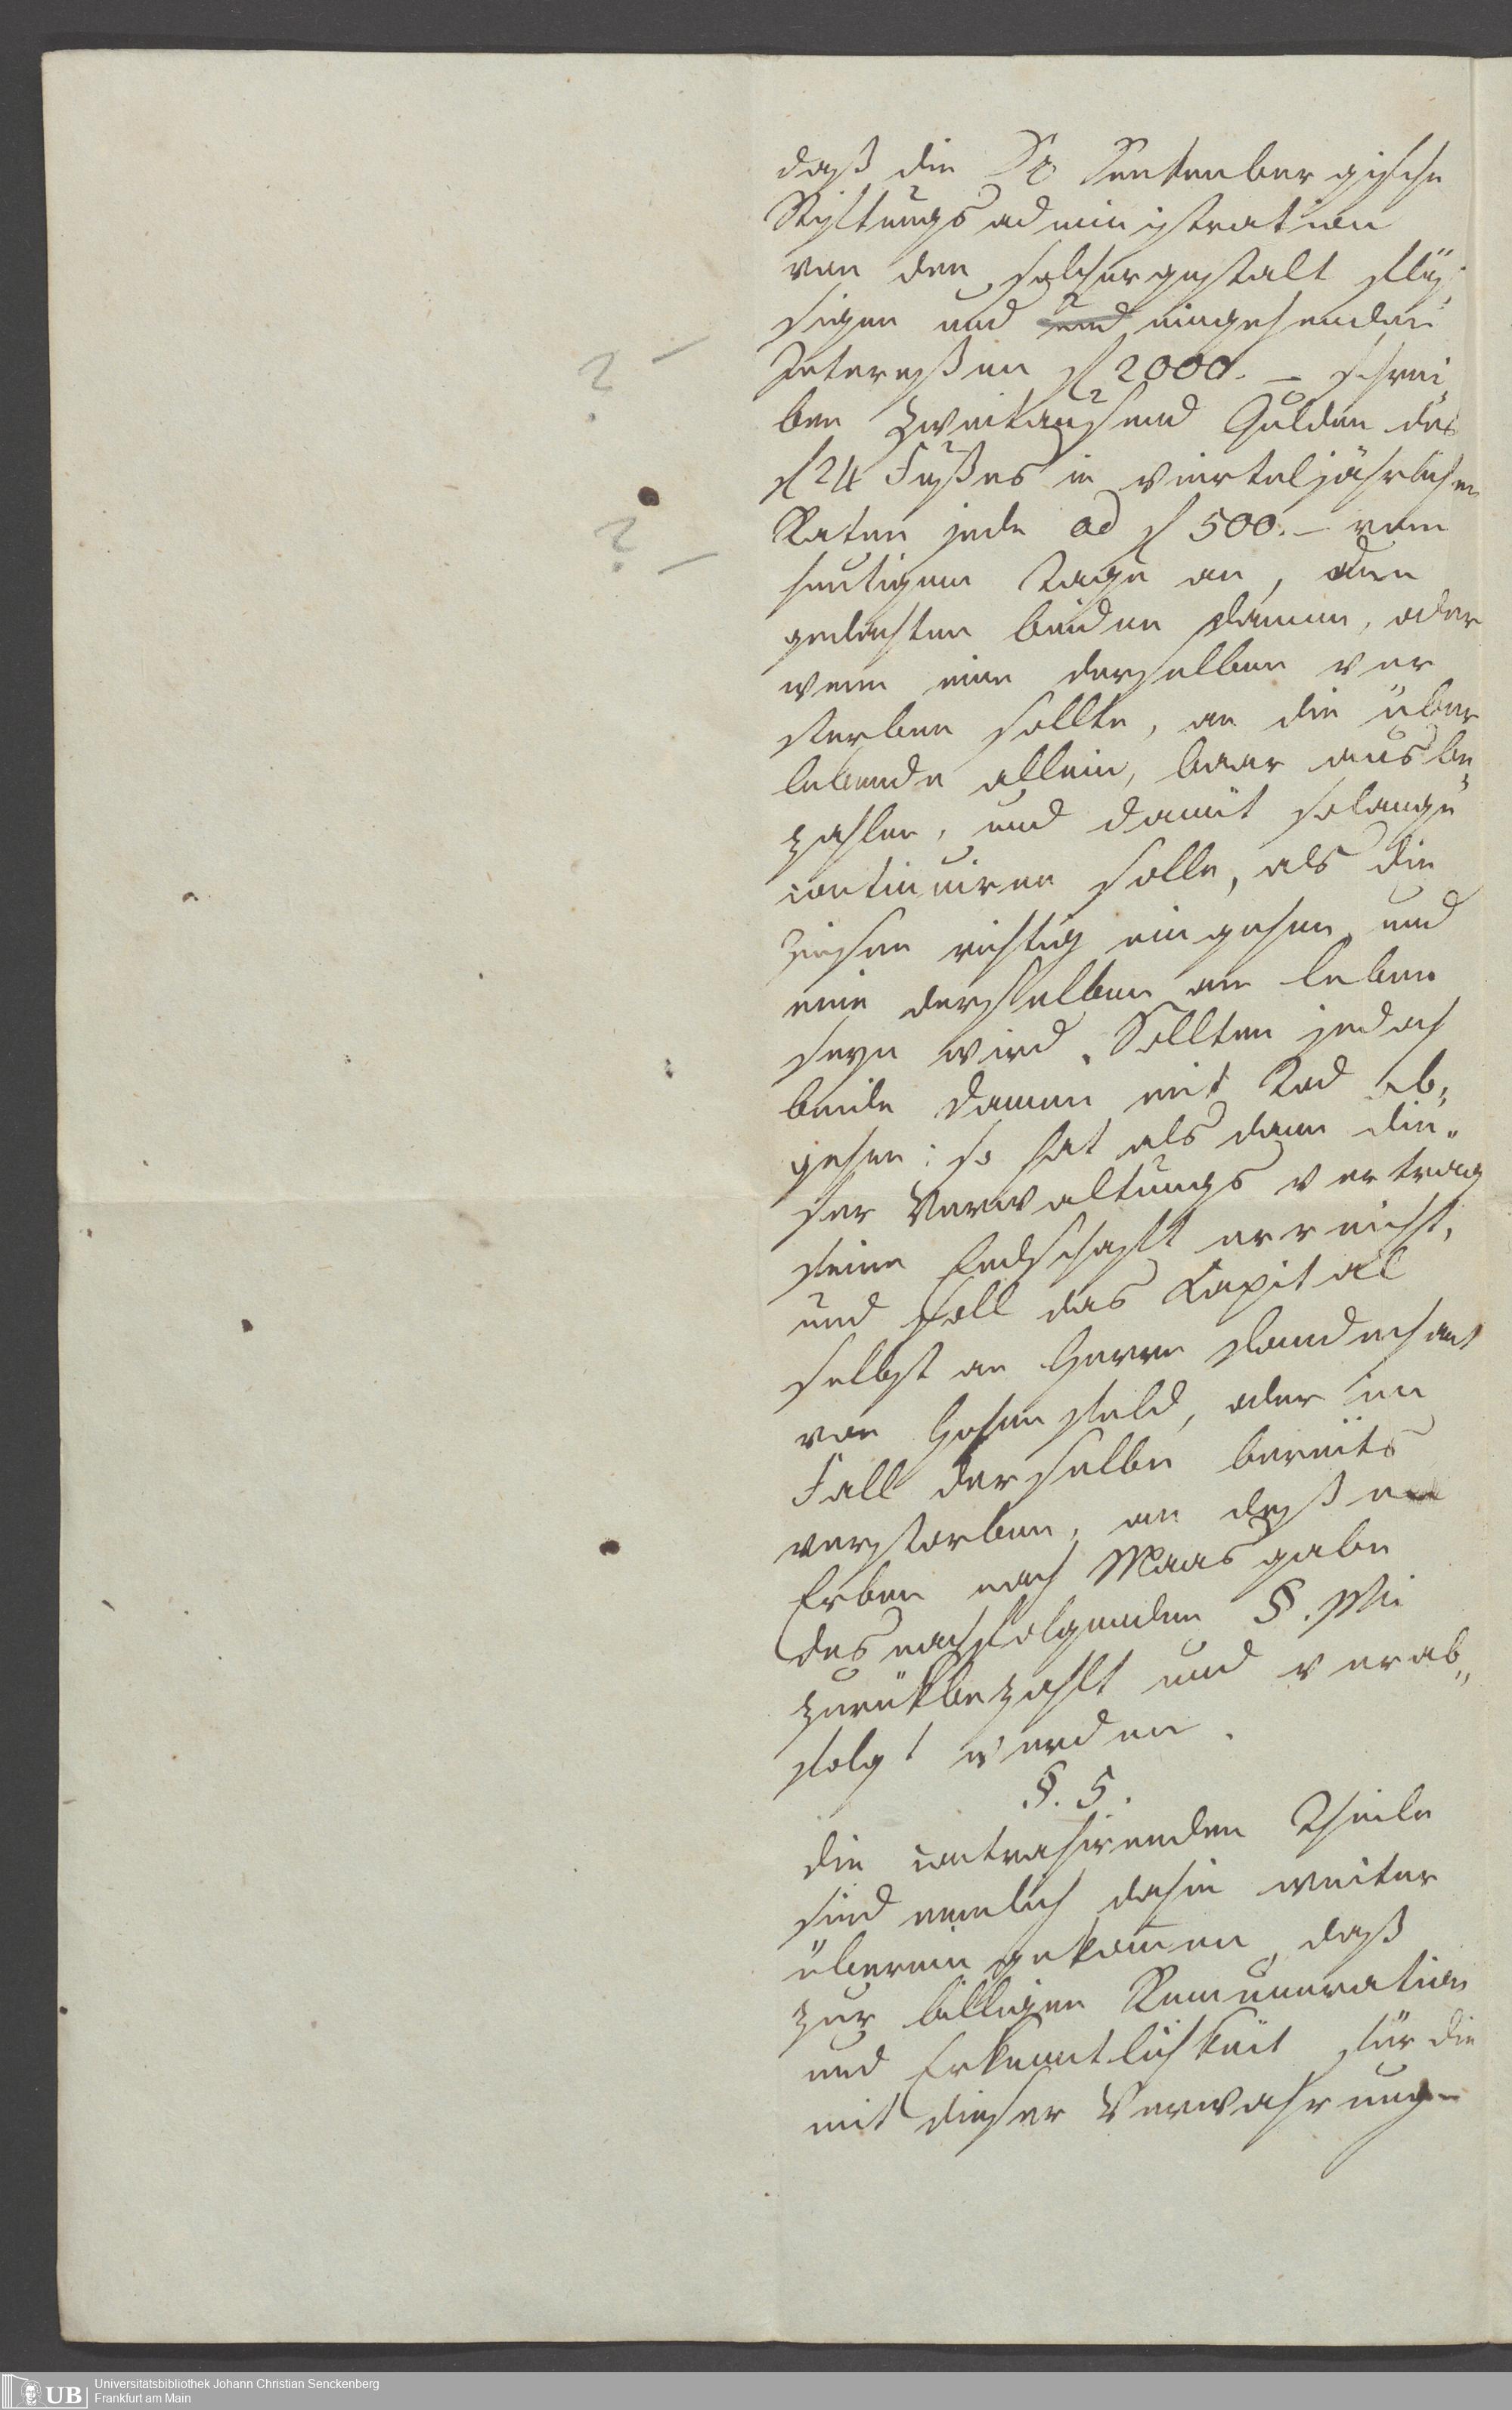 daß die Dr Senkenbergische
Stiftungsadministration
von den solchergestalt flüs¬
sigen und und eingehenden
? –
Interessen fl 2000. – schrei¬
ben Zweitausend Gulden des
fl 24 Fußes in vierteljährlichen
? –
Raten jede ad fl 500. – vom
heutigem Tage an, den
gedachten beiden Damen, oder
wenn eine derselben ver
sterben sollte, an die über
lebende allein, baar ausbe¬
zahlen, und damit solange
continuiren solle, als die
Zinsen richtig eingehen und
eine derselben am Leben
seyn wird. Sollten jedoch
beide Damen mit Tod ab¬
gehen: so hat alsdann die¬
ser Verwaltungsvertrag
seine Endschaft erreicht,
und soll das Kapital
selbst an Herrn
von Hohenfeld, oder im
Fall derselbe bereits
verstorben, an deßen
Erben nach Maasgabe
des nachfolgenden §.
zurükbezahlt und verab¬
folgt werden.
§. 5.
die contrahirenden Theile
sind nemlich dahin weiter
überein gekomen, daß
zur billigen Remuneration
und Erkenntlichkeit für die
mit dieser Verwahrung
Universitätsbibliothek Johann Christian Senckenberg
UB
Frankfurt am Main